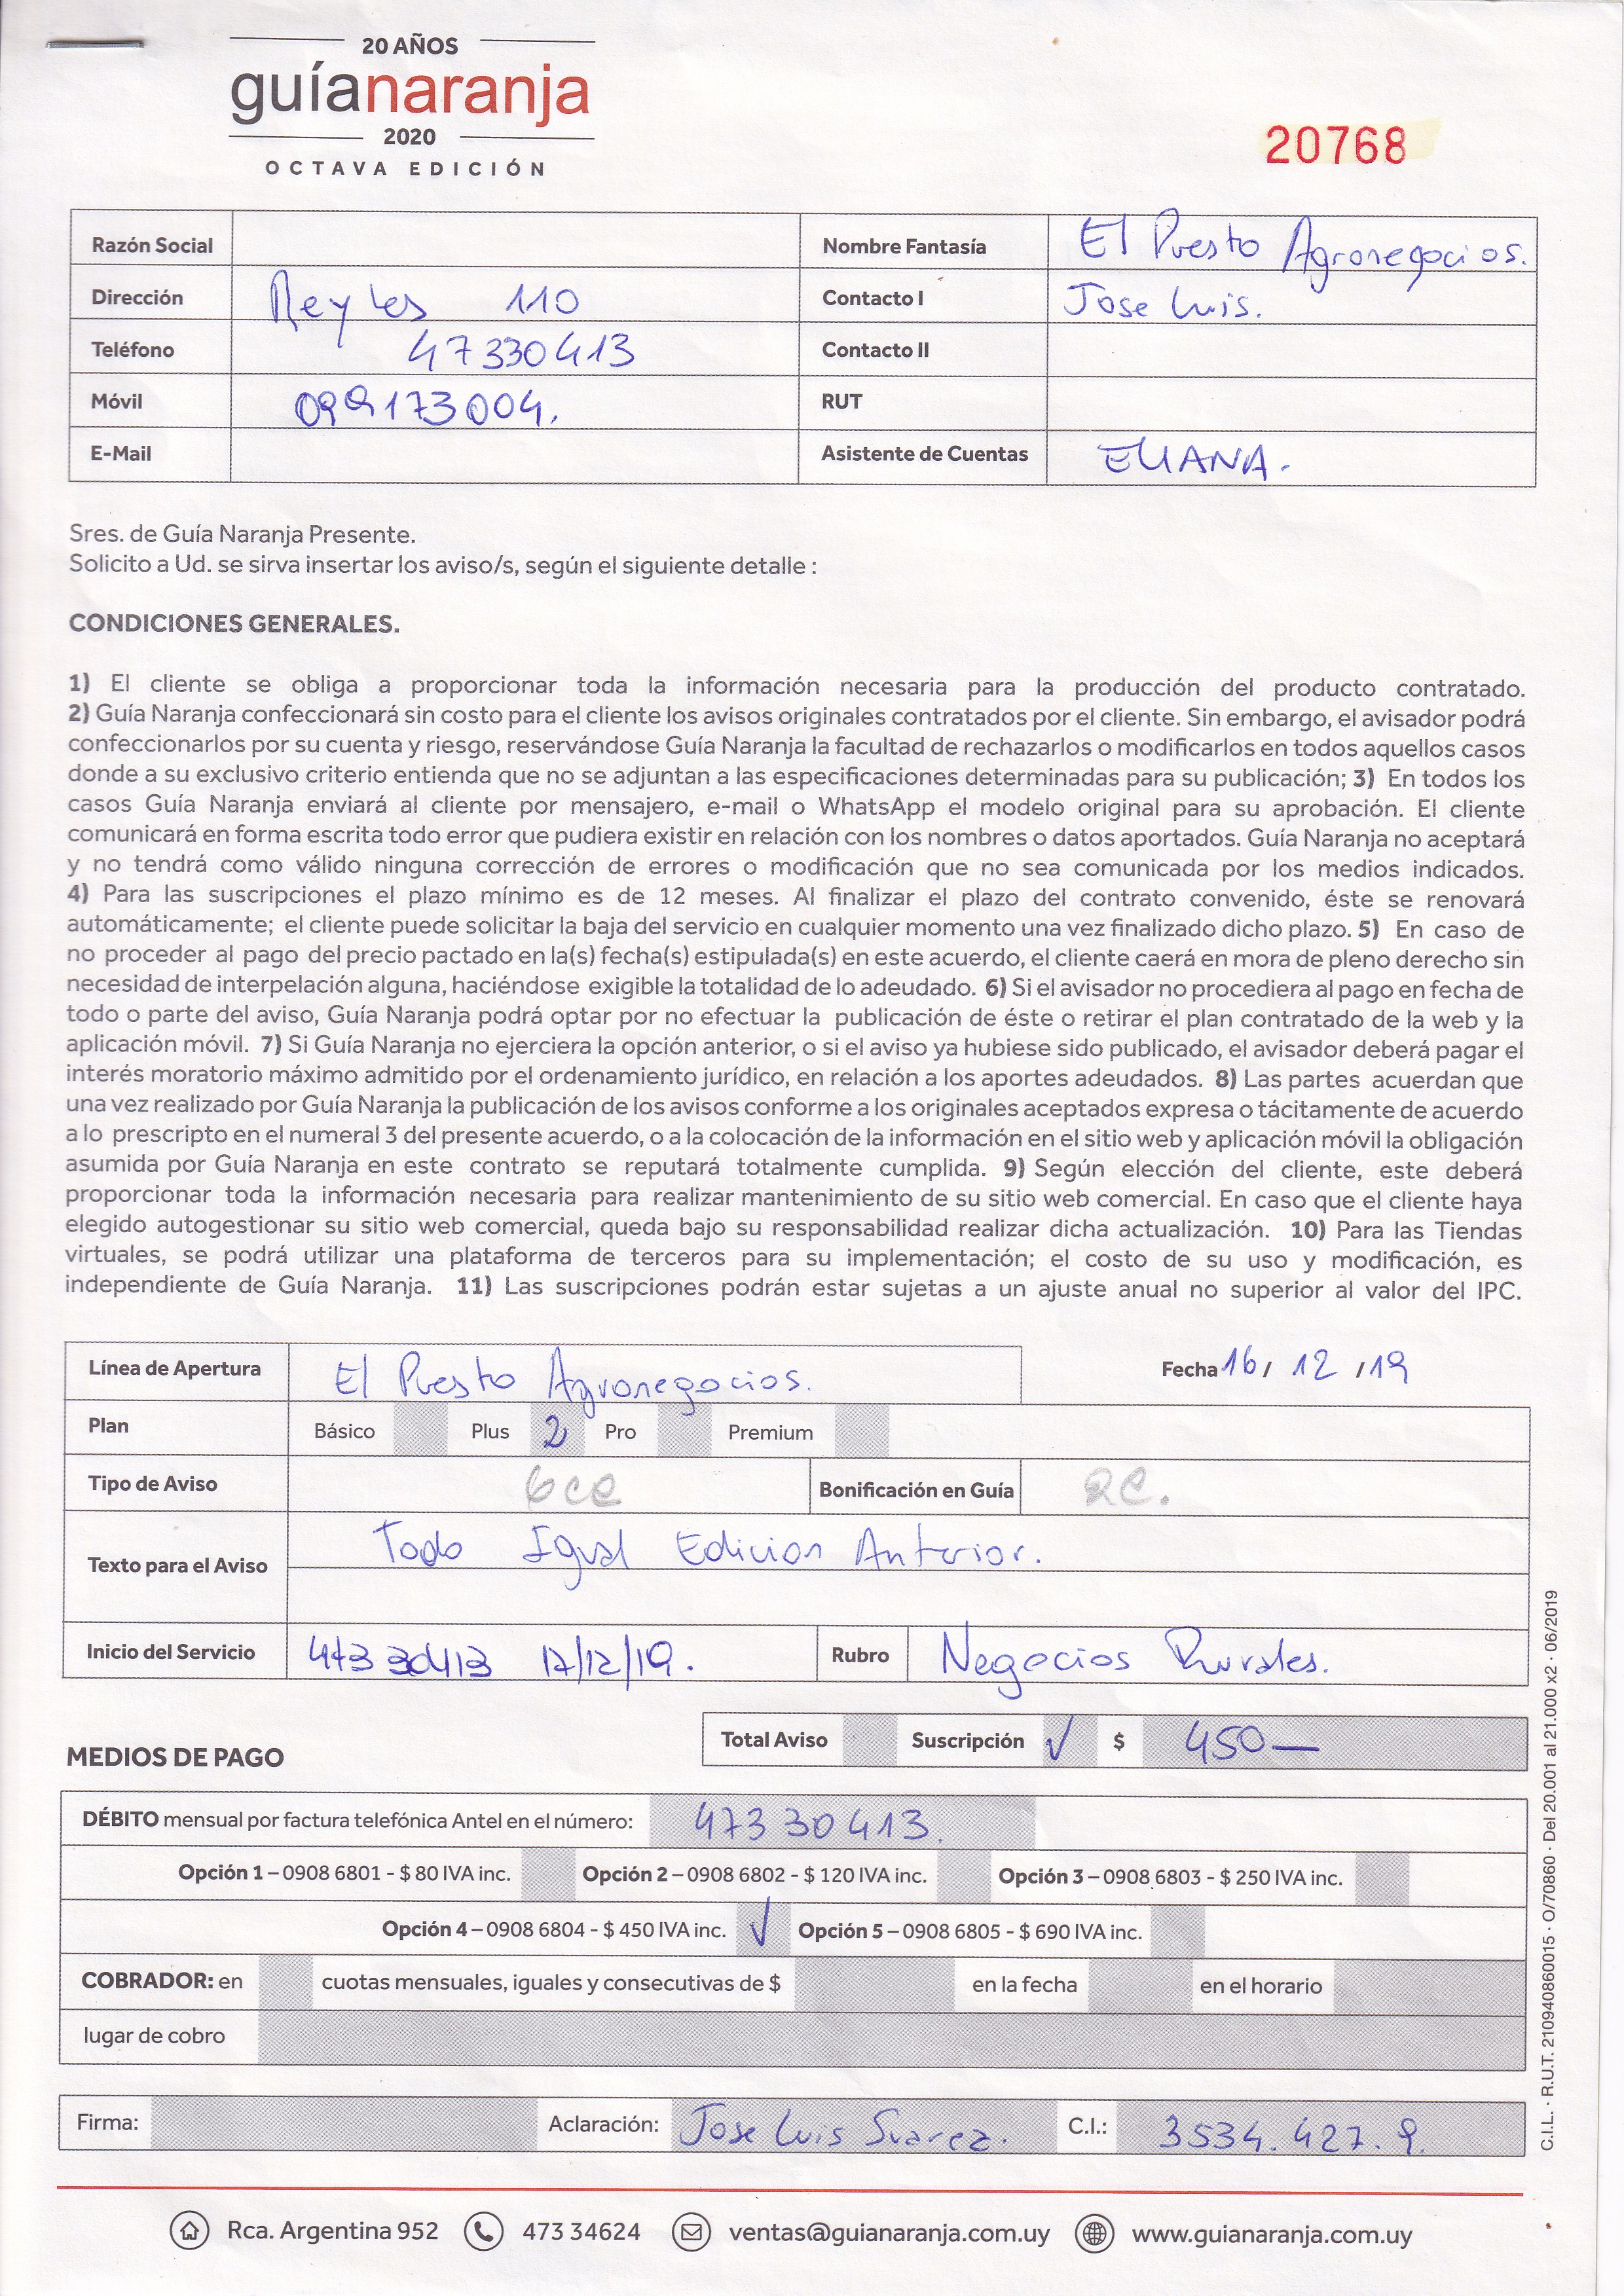 20 AÑOS
guíanaranja
2020
OCTAVA EDICIÓN
20768
Razón Social
Nombre Fantasía El Puesto Agronegocios.
Dirección Reyles 110
Contacto I Jose Luis.
Teléfono 47330413
Contacto II
Móvil 099173004.
RUT
E-Mail
Asistente de Cuentas ELIANA.
Sres. de Guía Naranja Presente.
Solicito a Ud. se sirva insertar los aviso/s, según el siguiente detalle :
CONDICIONES GENERALES.
1) El cliente se obliga a proporcionar toda la información necesaria para la producción del producto contratado.
2) Guía Naranja confeccionará sin costo para el cliente los avisos originales contratados por el cliente. Sin embargo, el avisador podrá
confeccionarlos por su cuenta y riesgo, reservándose Guía Naranja la facultad de rechazarlos o modificarlos en todos aquellos casos
donde a su exclusivo criterio entienda que no se adjuntan a las especificaciones determinadas para su publicación; 3) En todos los
casos Guía Naranja enviará al cliente por mensajero, e-mail o WhatsApp el modelo original para su aprobación. El cliente
comunicará en forma escrita todo error que pudiera existir en relación con los nombres o datos aportados. Guía Naranja no aceptará
y no tendrá como válido ninguna corrección de errores o modificación que no sea comunicada por los medios indicados.
4) Para las suscripciones el plazo mínimo es de 12 meses. Al finalizar el plazo del contrato convenido, éste se renovará
automáticamente; el cliente puede solicitar la baja del servicio en cualquier momento una vez finalizado dicho plazo. 5) En caso de
no proceder al pago del precio pactado en la(s) fecha(s) estipulada(s) en este acuerdo, el cliente caerá en mora de pleno derecho sin
necesidad de interpelación alguna, haciéndose exigible la totalidad de lo adeudado. 6) Si el avisador no procediera al pago en fecha de
todo o parte del aviso, Guía Naranja podrá optar por no efectuar la publicación de éste o retirar el plan contratado de la web y la
aplicación móvil. 7) Si Guía Naranja no ejerciera la opción anterior, o si el aviso ya hubiese sido publicado, el avisador deberá pagar el
interés moratorio máximo admitido por el ordenamiento jurídico, en relación a los aportes adeudados. 8) Las partes acuerdan que
una vez realizado por Guía Naranja la publicación de los avisos conforme a los originales aceptados expresa o tácitamente de acuerdo
a lo prescripto en el numeral 3 del presente acuerdo, o a la colocación de la información en el sitio web y aplicación móvil la obligación
asumida por Guía Naranja en este contrato se reputará totalmente cumplida. 9) Según elección del cliente, este deberá
proporcionar toda la información necesaria para realizar mantenimiento de su sitio web comercial. En caso que el cliente haya
elegido autogestionar su sitio web comercial, queda bajo su responsabilidad realizar dicha actualización. 10) Para las Tiendas
virtuales, se podrá utilizar una plataforma de terceros para su implementación; el costo de su uso y modificación, es
independiente de Guía Naranja. 11) Las suscripciones podrán estar sujetas a un ajuste anual no superior al valor del IPC.
Línea de Apertura El Puesto Agronegocios.
Fecha 16 / 12 / 19
Plan Básico Plus 2 Pro Premium
Tipo de Aviso 6cc Bonificación en Guía 2C.
Texto para el Aviso Todo Igual Edicion Anterior.
Inicio del Servicio 47330413 17/12/19. Rubro Negocios Rurales.
Total Aviso Suscripción ✓ $ 450—
MEDIOS DE PAGO
DÉBITO mensual por factura telefónica Antel en el número: 473 30 413.
Opción 1 – 0908 6801 - $ 80 IVA inc. Opción 2 – 0908 6802 - $ 120 IVA inc. Opción 3 – 0908 6803 - $ 250 IVA inc.
Opción 4 – 0908 6804 - $ 450 IVA inc. ✓ Opción 5 – 0908 6805 - $ 690 IVA inc.
COBRADOR: en cuotas mensuales, iguales y consecutivas de $ en la fecha en el horario
lugar de cobro
Firma: Aclaración: Jose Luis Suarez. C.I.: 3534.427.9.
Rca. Argentina 952 473 34624 ventas@guianaranja.com.uy www.guianaranja.com.uy
C.I.L. · R.U.T. 210940860015 · O/70860 · Del 20.001 al 21.000 x2 · 06/2019